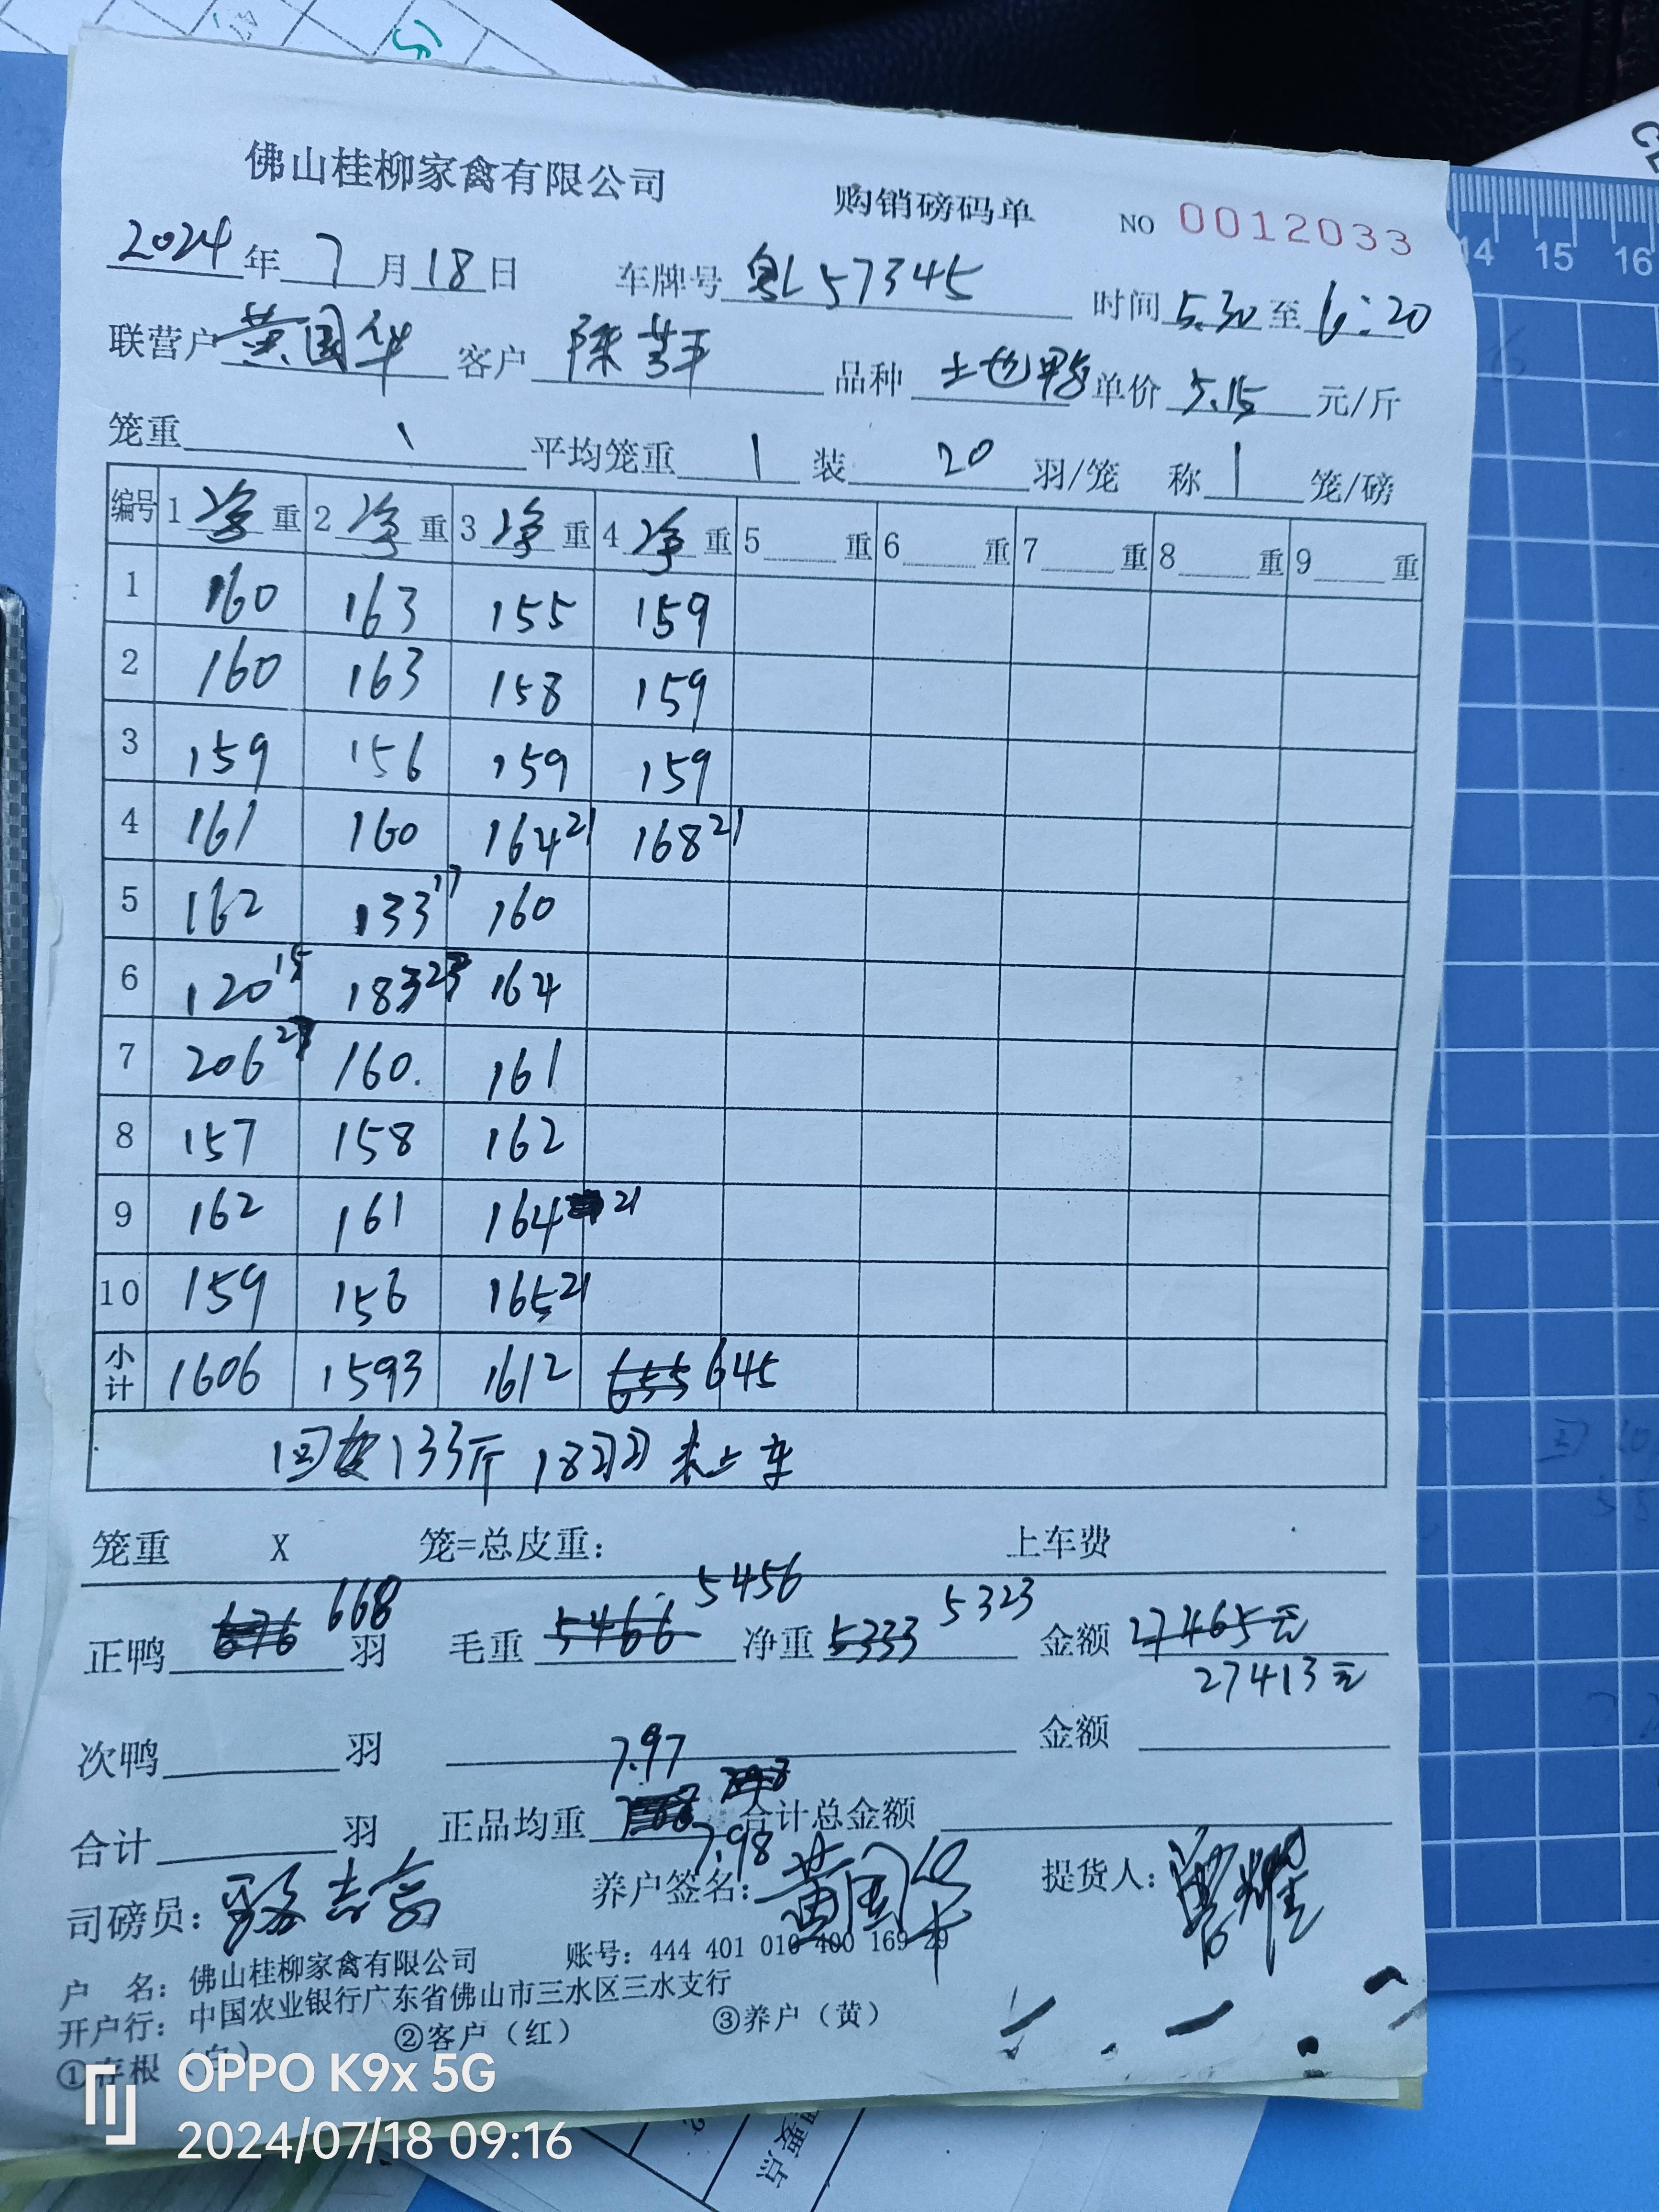 佛山桂柳家禽有限公司 购销磅码单 NO 0012033
2024年7月18日 车牌号 粤L57345 时间 5.30 至 6:20
联营户 黄国华 客户 陈 品种 土地鸭 单价 5.15 元/斤
笼重 \ 平均笼重 \ 装 20 羽/笼 称 1 笼/磅
编号 1 净 重 2 净 重 3 净 重 4 净 重 5 重 6 重 7 重 8 重 9 重
1 160 163 155 159
2 160 163 158 159
3 159 156 159 159
4 161 160 164 21 168 21
5 162 133 17 160
6 120 15 183 23 164
7 206 160. 161
8 157 158 162
9 162 161 164 21
10 159 156 165 21
小计 1606 1593 1612 655 645
回 133斤 18羽 未上车
笼重 X 笼=总皮重: 上车费
正鸭 676 668 羽 毛重 5466 5456 净重 5333 5323 金额 27465元
27413元
次鸭 羽 7.97 金额
合计 羽 正品均重 7.98 合计总金额
司磅员: 养户签名: 黄国华 提货人:
户 名: 佛山桂柳家禽有限公司 账号: 444 401 010 400 169 29
开户行: 中国农业银行广东省佛山市三水区三水支行
①存根（白） ②客户（红） ③养户（黄）
OPPO K9x 5G
2024/07/18 09:16
14 15 16